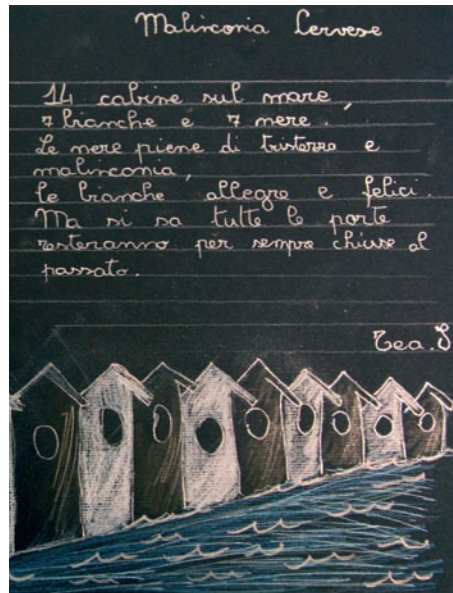 Malinconia Cervese
14 cabine sul mare,
7 bianche e 7 nere.
Le nere piene di tristezza e
malinconia,
le bianche allegre e felici.
Ma si sa tutte le porte
resteranno per sempre chiuse al
passato.
Tea.S